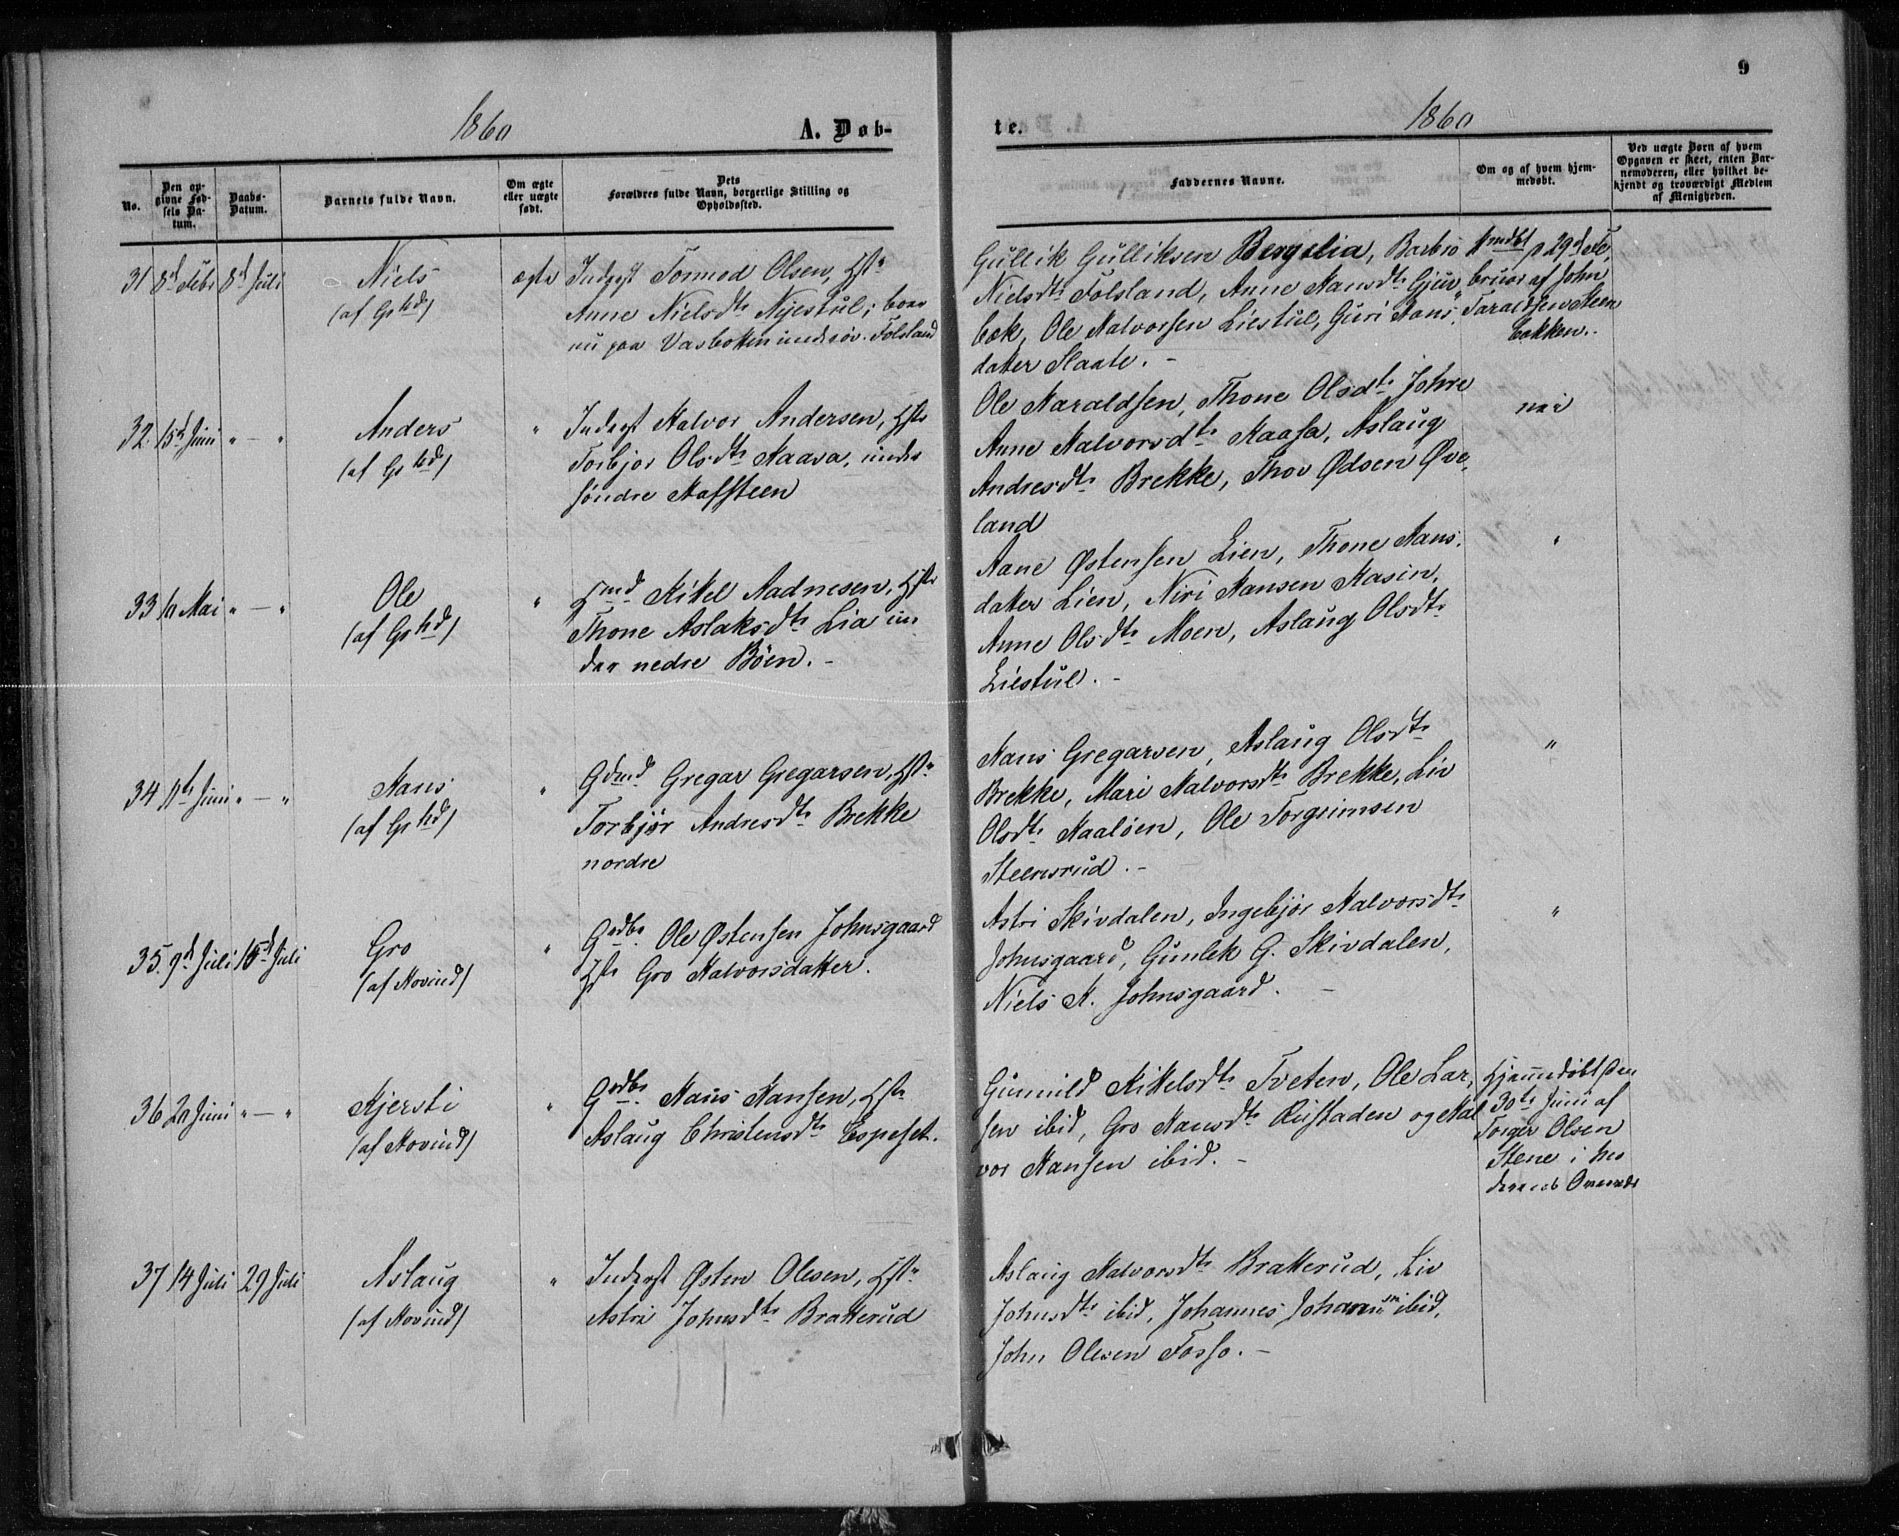 9
1860
A. Døb-
te.
1860
No.
Den op-
givne Fød-
sels Da-
tum.
Daabs-
Datum.
Barnets fulde Navn.
Om ægte
eller uægte
født.
Dets
Forældres fulde Navn, borgerlige Stilling og
Opholdssted.
Faddernes Navne.
Om og af hvem hjem-
medøbt.
Ved uægte Børn af hvem
Opgaven er skeet, enten Bar-
nemoderen, eller hvilket be-
kjendt og troværdigt Medlem
af Menigheden.
31 8d Febr 8d Juli
Niels
(af Grhd)
ægte
Inderst Tormod Olsen, Hstr
Anne Nielsdtr Nyestul; boer
nu paa Vasbotten under Folsland
Gullik Gulliksen Bergelia, Barbro
Nielsdtr Folsland, Anne Hansdtr Gjuv
bæk, Ole Halvorsen Liestul, Guri Hans
datter Slaate. -
Hmdbt p 29d Fe,
bruar af John
Taraldsen Steen
bakken.
32. 15d Juni " — "
Anders
(af Grhd)
"
Inderst Halvor Andersen, Hstr
Torbjør Olsdtr Haava, under
søndre Hafsteen
Ole Haraldsen, Thone Olsdtr Johre
Anne Halvorsdtr Kaasa, Aslaug
Andresdtr Brekke, Thov Ødsen Øve,
land
nei
33 10 Mai " — "
Ole
(af Grhd)
"
Hmd Kittel Aadnesen, Hstr
Thone Aslaksdtr Lia un
der nedre Böen. -
Aane Østensen Lien, Thone Hans,
datter Lien, Niri Hansen Kasin,
Anne Olsdtr Moen, Aslaug Olsdtr
Liestul. -
"
34 11te Juni " — "
Hans
(af Grhd)
"
Gdmd. Gregar Gregarsen, Hstr
Torbjør Andresdtr Brekke
nordre
Hans Gregarsen, Aslaug Olsdtr
Brekke, Mari Halvorsdtr Brekke, Liv
Olsdtr Haalöen, Ole Torgrimsen
Steensrud. -
"
35. 9d Juli 15d Juli
Gro
(af Hovind)
"
Gdbr. Ole Østensen Johnsgaard
Hstr Gro Halvorsdatter.
Astri Skivdalen, Ingebjør Halvorsdtr
Johnsgaard, Gunlek G. Skivdalen,
Niels H. Johnsgaard. -
"
36 20 Juni " — "
Kjersti
(af Hovind)
"
Gdbr. Hans Hansen, Hstr
Aslaug Christensdtr Espeset.
Gunnild Kittelsdtr Tveten, Ole Lar,
sen ibid, Gro Hansdtr Rustaden og Hal
vor Hansen ibid. -
Hjemmedöbt den
30te Juni af
Torger Olsen
Stene i
37 14 Juli 29 Juli
Aslaug
(af Hovind)
"
Inderst Østen Olesen, Hstr
Astri Johnsdtr Bratterud
Aslaug Halvorsdtr Bratterud, Liv
Johnsdtr ibid, Johannes Johannsn ibid,
John Olesen Fosso. -